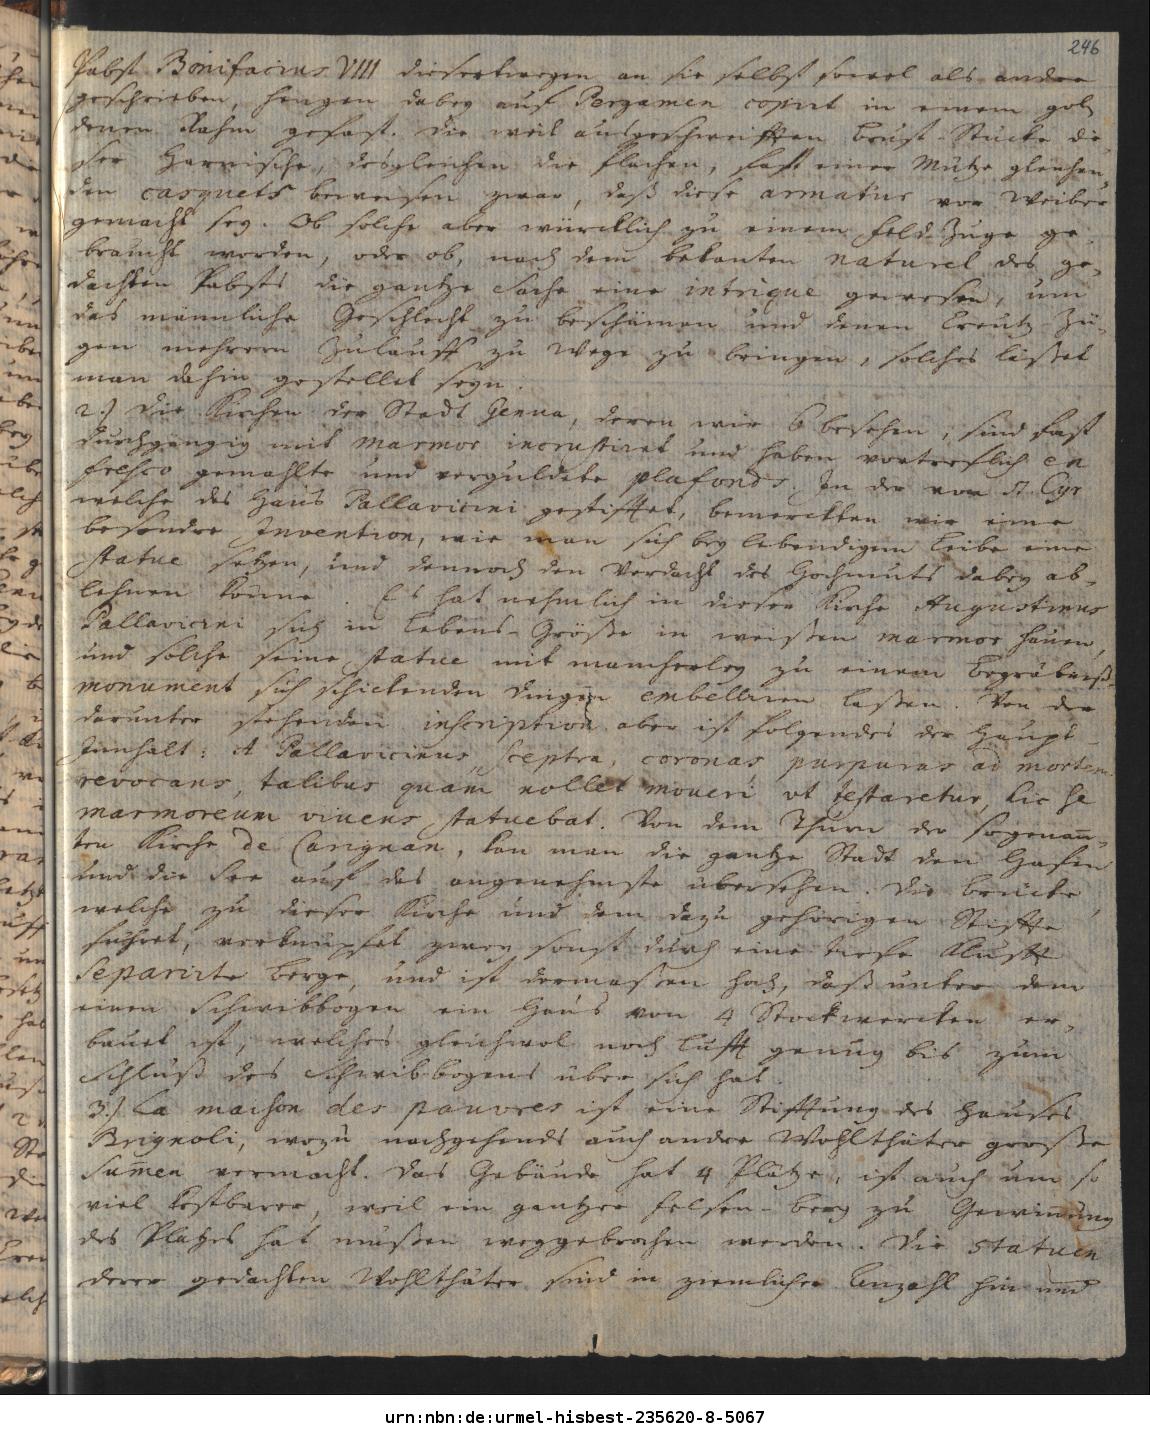 246
Pabst Bonifacius VIII dieserhwegen an sie selbst sowol als andere
geschrieben, hengen dabey auf Pergamen copirt in einem gol
denen Rahm gefast. Die weit ausgeschweifften Brust-Stücke die
ser Harnische, desgleichen die flachen, fast einer Mütze gleichen
den casquets beweisen zwar, daß diese armatur vor Weiber
gemacht sey. Ob solche aber würcklich zu einem Feld-Zuge ge-
braucht worden, oder ob, nach dem bekanten naturel des ge-
dachten Pabsts die gantze Sache eine intrique gewesen, um
das männliche Geschlecht zu beschämen und denen Creutz-Zü-
gen mehrern Zulauff zu Wege zu bringen, solches läßet
man dahin gestellet seyn.
2.) Die Kirchen der Stadt Genua, deren wir 6 besehen, sind fast
durchgängig mit marmor incrustiret und haben vortreflich en
fresco gemahlte und verguldete plafonds. In der von St Cyr
welche das Haus Pallavicini gestifftet, bemerckten wir eine
besondre Invention, wie man sich bey lebendigem Leibe eine
statue setzen, und dennoch den Verdacht des Hochmuts dabey ab-
lehnen könne. Es hat nehmlich in dieser Kirche Augustinus
Pallavicini sich in Lebens-Größe in weißen marmor hauen,
und solche seine statue mit mancherley zu einem Begräbniß-
monument sich schickenden Dingen embelliren laßen. Von der
darunter stehenden inscription aber ist folgendes der Haupt-
Innhalt: A Pallavicinus, sceptra, coronas, purpuras ad mortem
revocans, talibus quam nollet moveri, ut testaretur, hic se
marmoreum vivens statuebat. Von dem Thurn der sogenan-
ten Kirche de Carignan, kan man die gantze Stadt den Hafen
und die See auf das angenehmste übersehen. Die Brücke,
welche zu dieser Kirche und dem dazu gehörigen Stiffte
führet, verknüpfet zwey sonst durch eine tiefe Klufft
separirte Berge, und ist dermaßen hoch, daß unter dem
einen Schwibbogen ein Haus von 4 Stockwercken er-
bauet ist, welches gleichwol noch Lufft genug bis zum
Schluß des Schwibbogens über sich hat.
3.) La maison des pauvres ist eine Stifftung des Hauses
Brignoli, wozu nachgehends auch andre Wohlthäter große
Sum̄en vermacht. Das Gebäude hat 4 Plätze, ist auch um so
viel kostbarer, weil ein gantzer Felsen-Berg zu Gewinnung
des Platzes hat müßen weggebrochen werden. Die statuen
derer gedachten Wohlthäter sind in ziemlicher Anzahl hin und
urn:nbn:de:urmel-hisbest-235620-8-5067